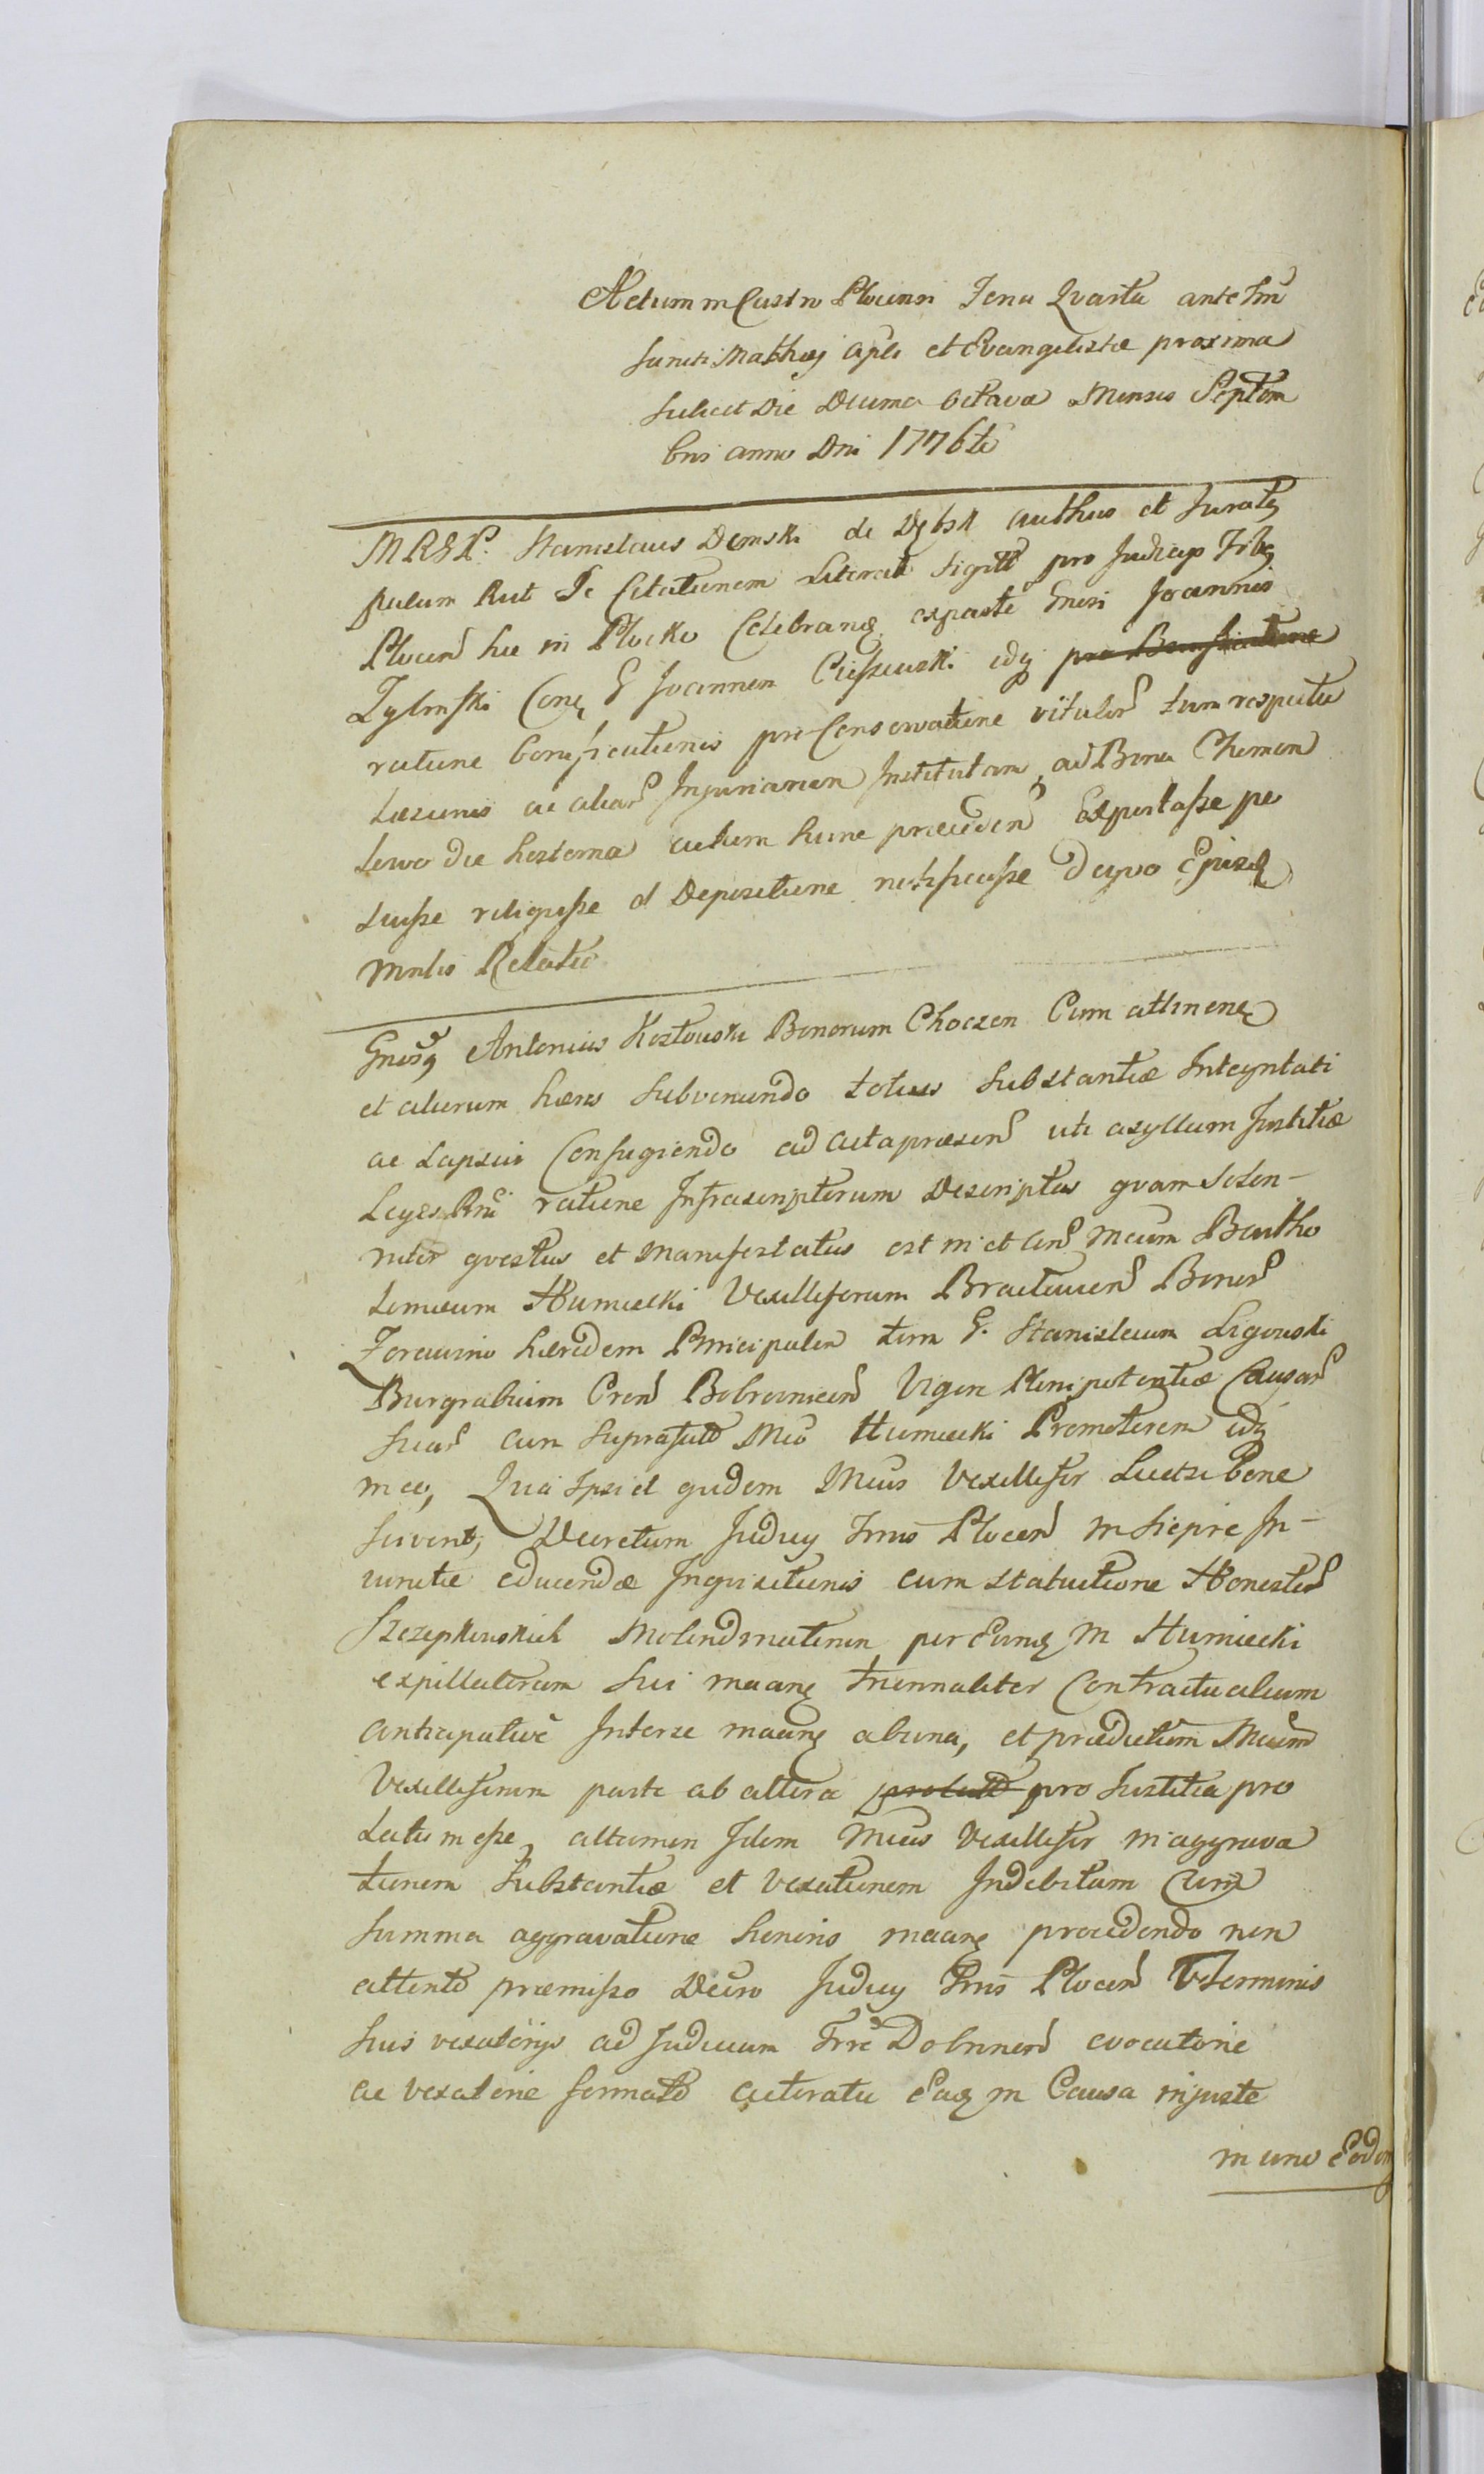 Actum in Castro Plocensi Feria Quarta ante Fm̃
Sancti Mathæj Apli et Evangelistæ proxima
scilicet Die Decima Octava Mensis Septem
bris anno Dni 1776to
MRGR. Stanislaus Demski de Dębsk authus et Juratq
Plocen hic in Plocko Celebranq exparte Gnesi Joannis
Zylinski Conq G Joannem Cieszewski idq pro Bonificatione
ratione bonificationis pro Conservatione vitulor tum respectu
Læsionis ac aliar Injuriarum Institutam ad Bona Chomen
towo die hesterna actum hunc præceden Exportasse po
suisse reliquisse et Depositione notificasse De quo
mnlis Relatio
Gnosq Antonius Kozłowski Bonorum Choczen Cum attinenq
et aliorum hæres Subveniendo totius Substantiæ Integritati
ac Lapsui Confugiendo ad acta præsen uti asyllum Justitiæ
Leges Rni ratione Infrascriptorum Descriptus quam Solen-
niter qvestus et Manifestatus est in et cnr Mcum Bartho
lomæum Humiecki Vexilliferum Braclavien Bonor
Zorawino hæredem Principalem tum G. Stanislaum Ligowski
Burgrabium Cren Bobrovnicen Vigore Plenipotentiæ Causar
Suar cum Suprafato Mco Humiecki Promotorem idq
in eo, Quia Ipsi et quidem Mcus Vexillifer Luctse bene
scivent, Decretum Judicy Trnis Plocen in Siepre In-
cunctæ educendæ Inquisitionis cum Statuitione Honestor
Szczepkowskich Molendinatorum per Eunq M Humiecki
expillatorum Sui maanq triennaliter Contractualium
anticipative Inter se maanq ab una, et prædictum Mcum
Vexilliferum parte ab altera prolato pro Justitia pro
Latum esse, attamen Idem Mcus Vexillifer in aggrava
tionem Substantiæ et Vexationem Indebitam Cum
summa aggravatione honoris maanq procedendo non
attento præmisso Decro Judicy Trnis Plocen Terminis
suis vexatorijs ad Judicium Trre Dobrinen evocatorie
ac vexatorie formato acteratu Eaq in Causa injuste
in uno Eodem